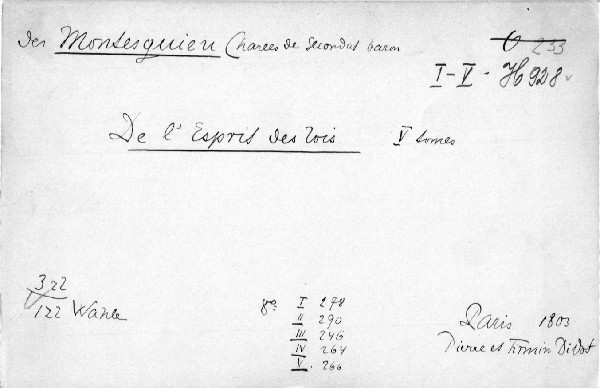 des Montesquieu Charles de Secondat baron
233
I-V - H 928
De l'Esprit des lois V tomes
322
122 Wahle
8o. I 278
II 290
III 246
IV 264
V. 266
Paris 1803
Pierre et Firmin Didot